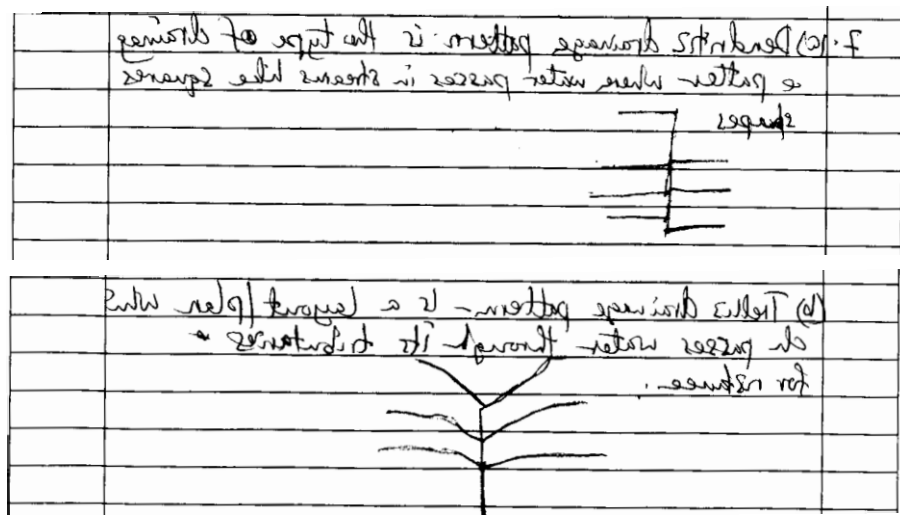 7.(c) Dendritic drainage pattern is the type of drainag
e patter where water passes in streams like squares
shapes
(b) Trellis drainage pattern - Is a layout/plan whi
ch passes water through its tributaries
for instance.